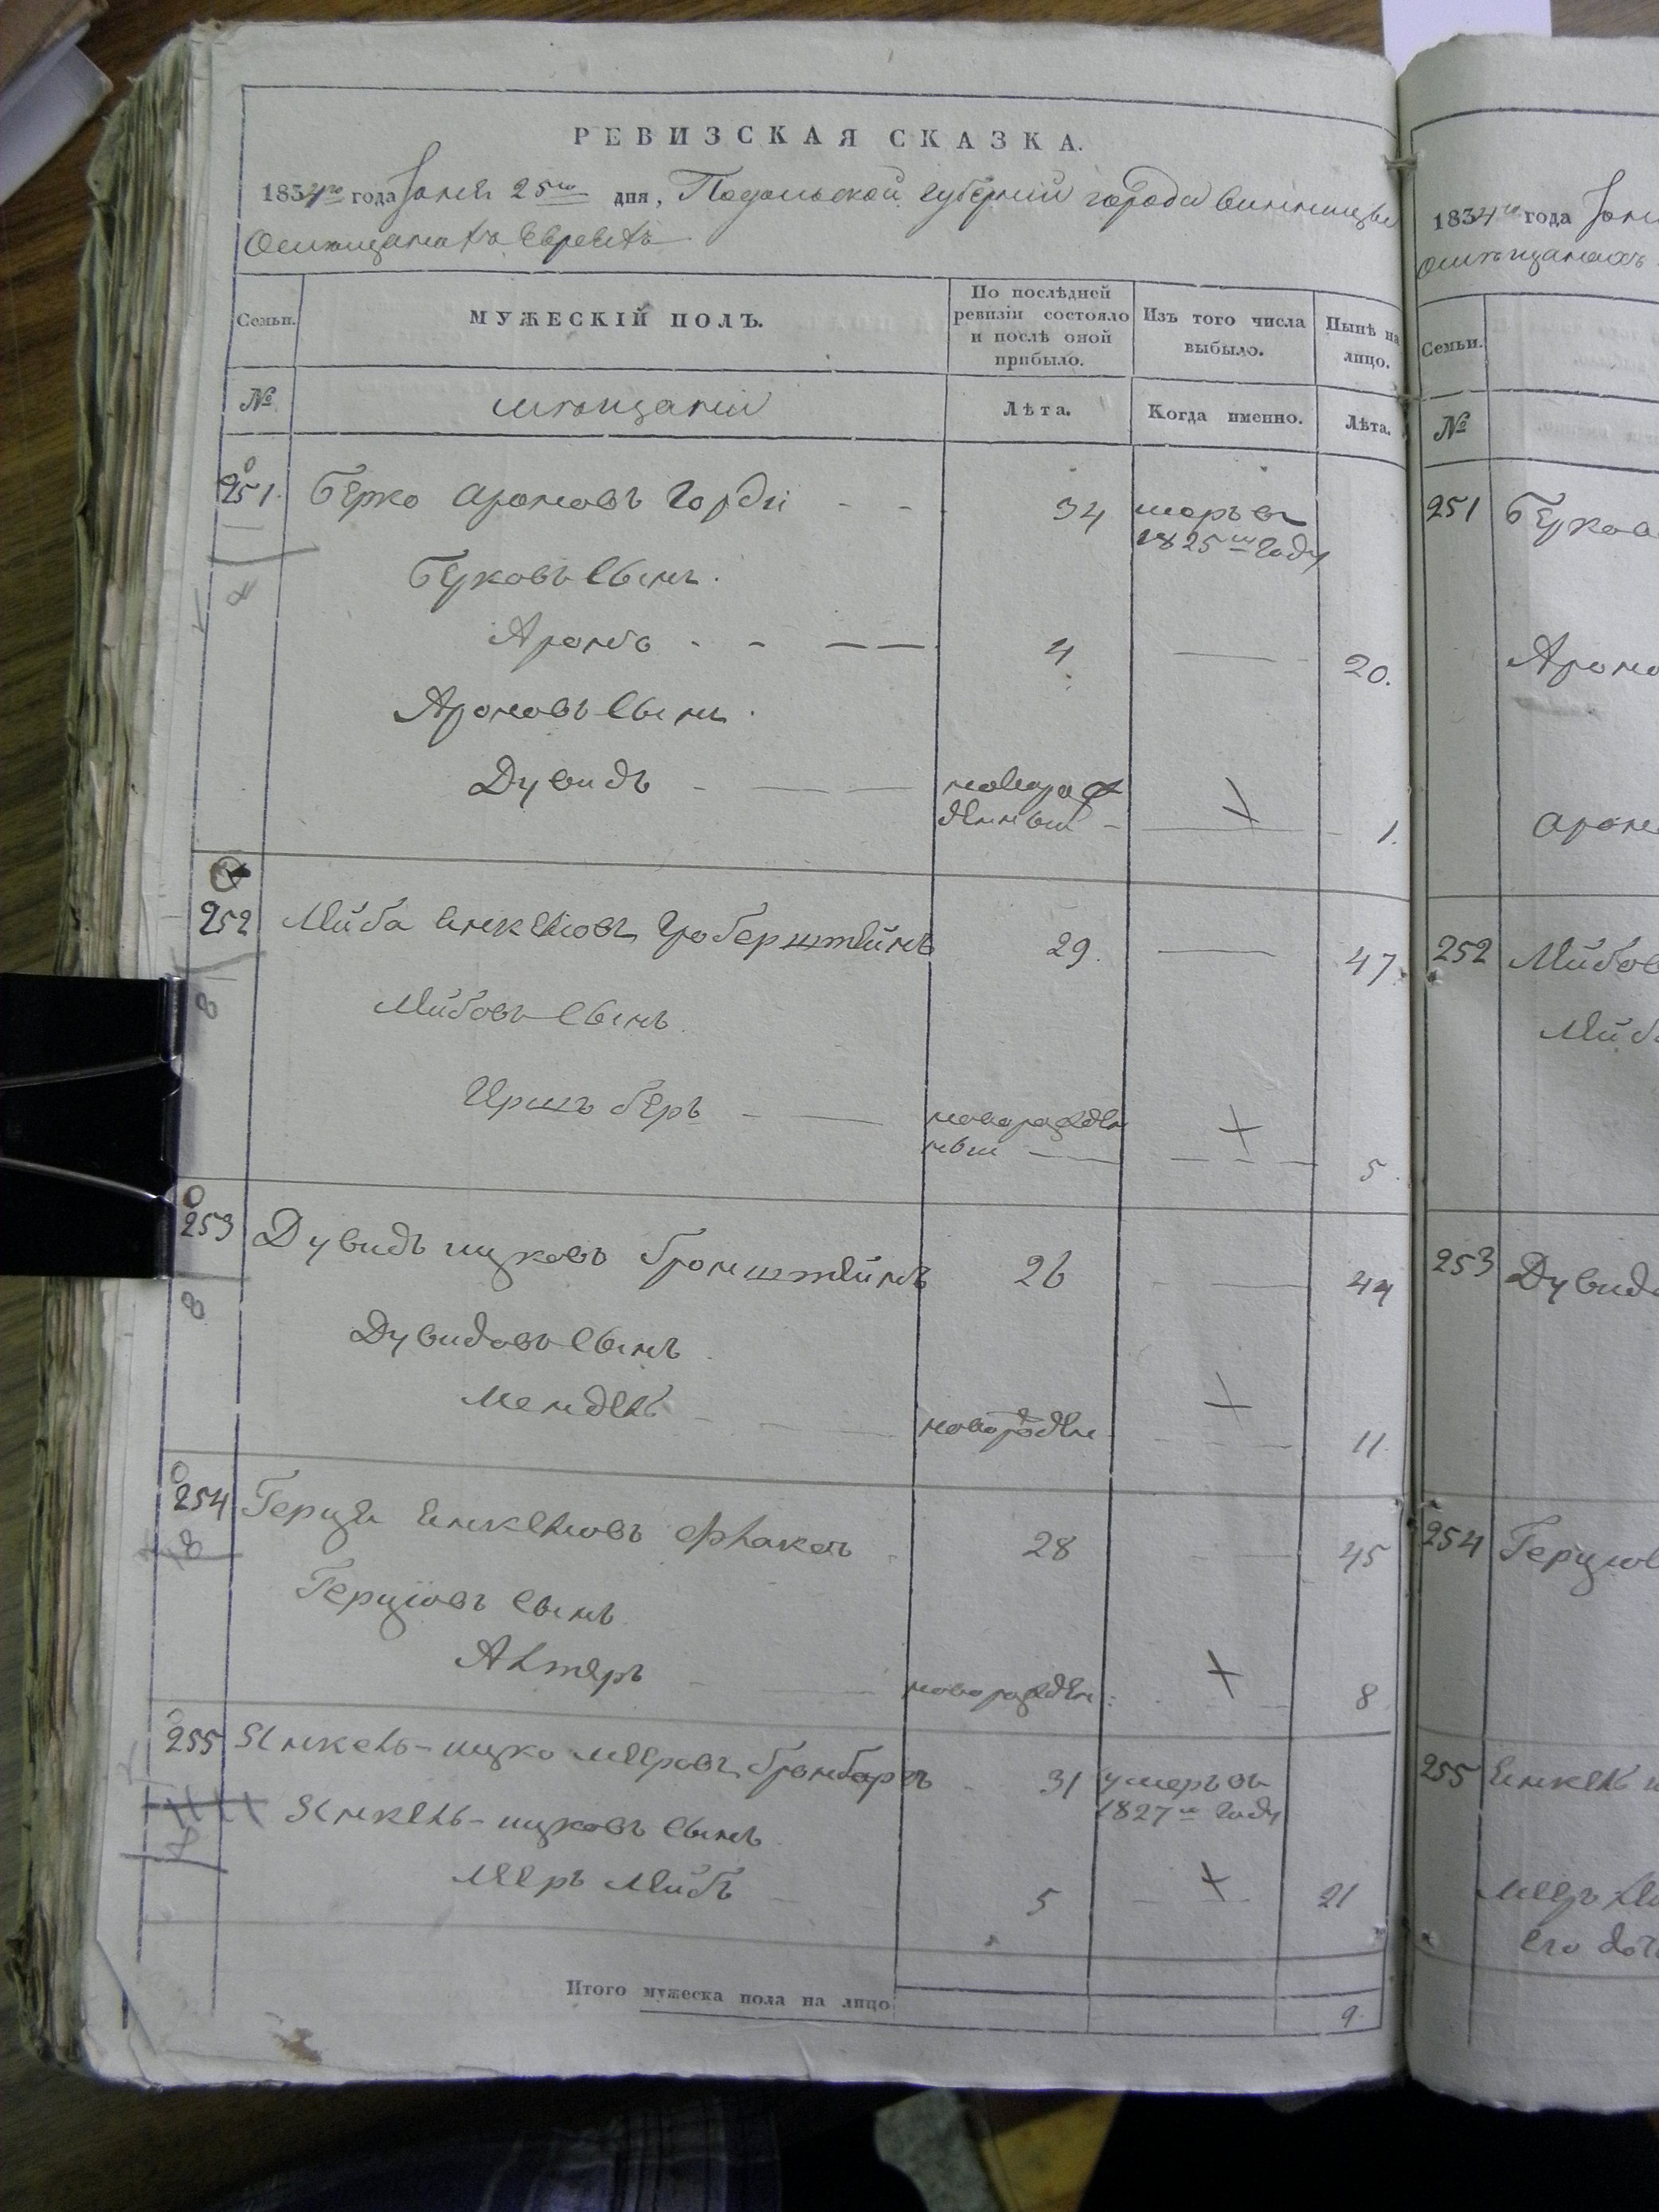 РЕВИЗСКАЯ СКАЗКА.
1834го года Іюня 25го дня, Подольской губерніи города винницы
Омѣщанахъ Евреяхъ
Семьи.
МУЖЕСКІЙ ПОЛЪ.
По послѣдней ревизіи состояло и послѣ оной прибыло.
Изъ того числа выбыло.
Нынѣ на лицо.
№
мѣщани
Лѣта.
Когда именно.
Лѣта.
251. Берко ароновъ Горди 34 умеръ въ
1825м году
Берковъ сынъ.
Аронъ 4 20.
Ароновъ сынъ.
Дувидъ новорож
денный 1.
252 Лейба Янкелиовъ Гроберштейнъ 29. 47.
Лейбовъ сынъ
Иршъ беръ новорожден
ный 5.
253 Дувидъ ицковъ бронштейнъ 26 44
Дувидовъ сынъ
Мендель новорожден 11.
254 Герцъ Янкелиовъ 28 45
Герцювъ сынъ
Алтеръ новорожден: 8
255 Янкель-ицко мееровъ 31 умеръ въ
1827м году
Янкель-ицковъ сынъ
Мееръ Лейбъ 5 21
Итого мужеска пола на лицо 9.
1834го года
омѣщанахъ
Семьи.
№
251
252
253
254
255 Янкель
его